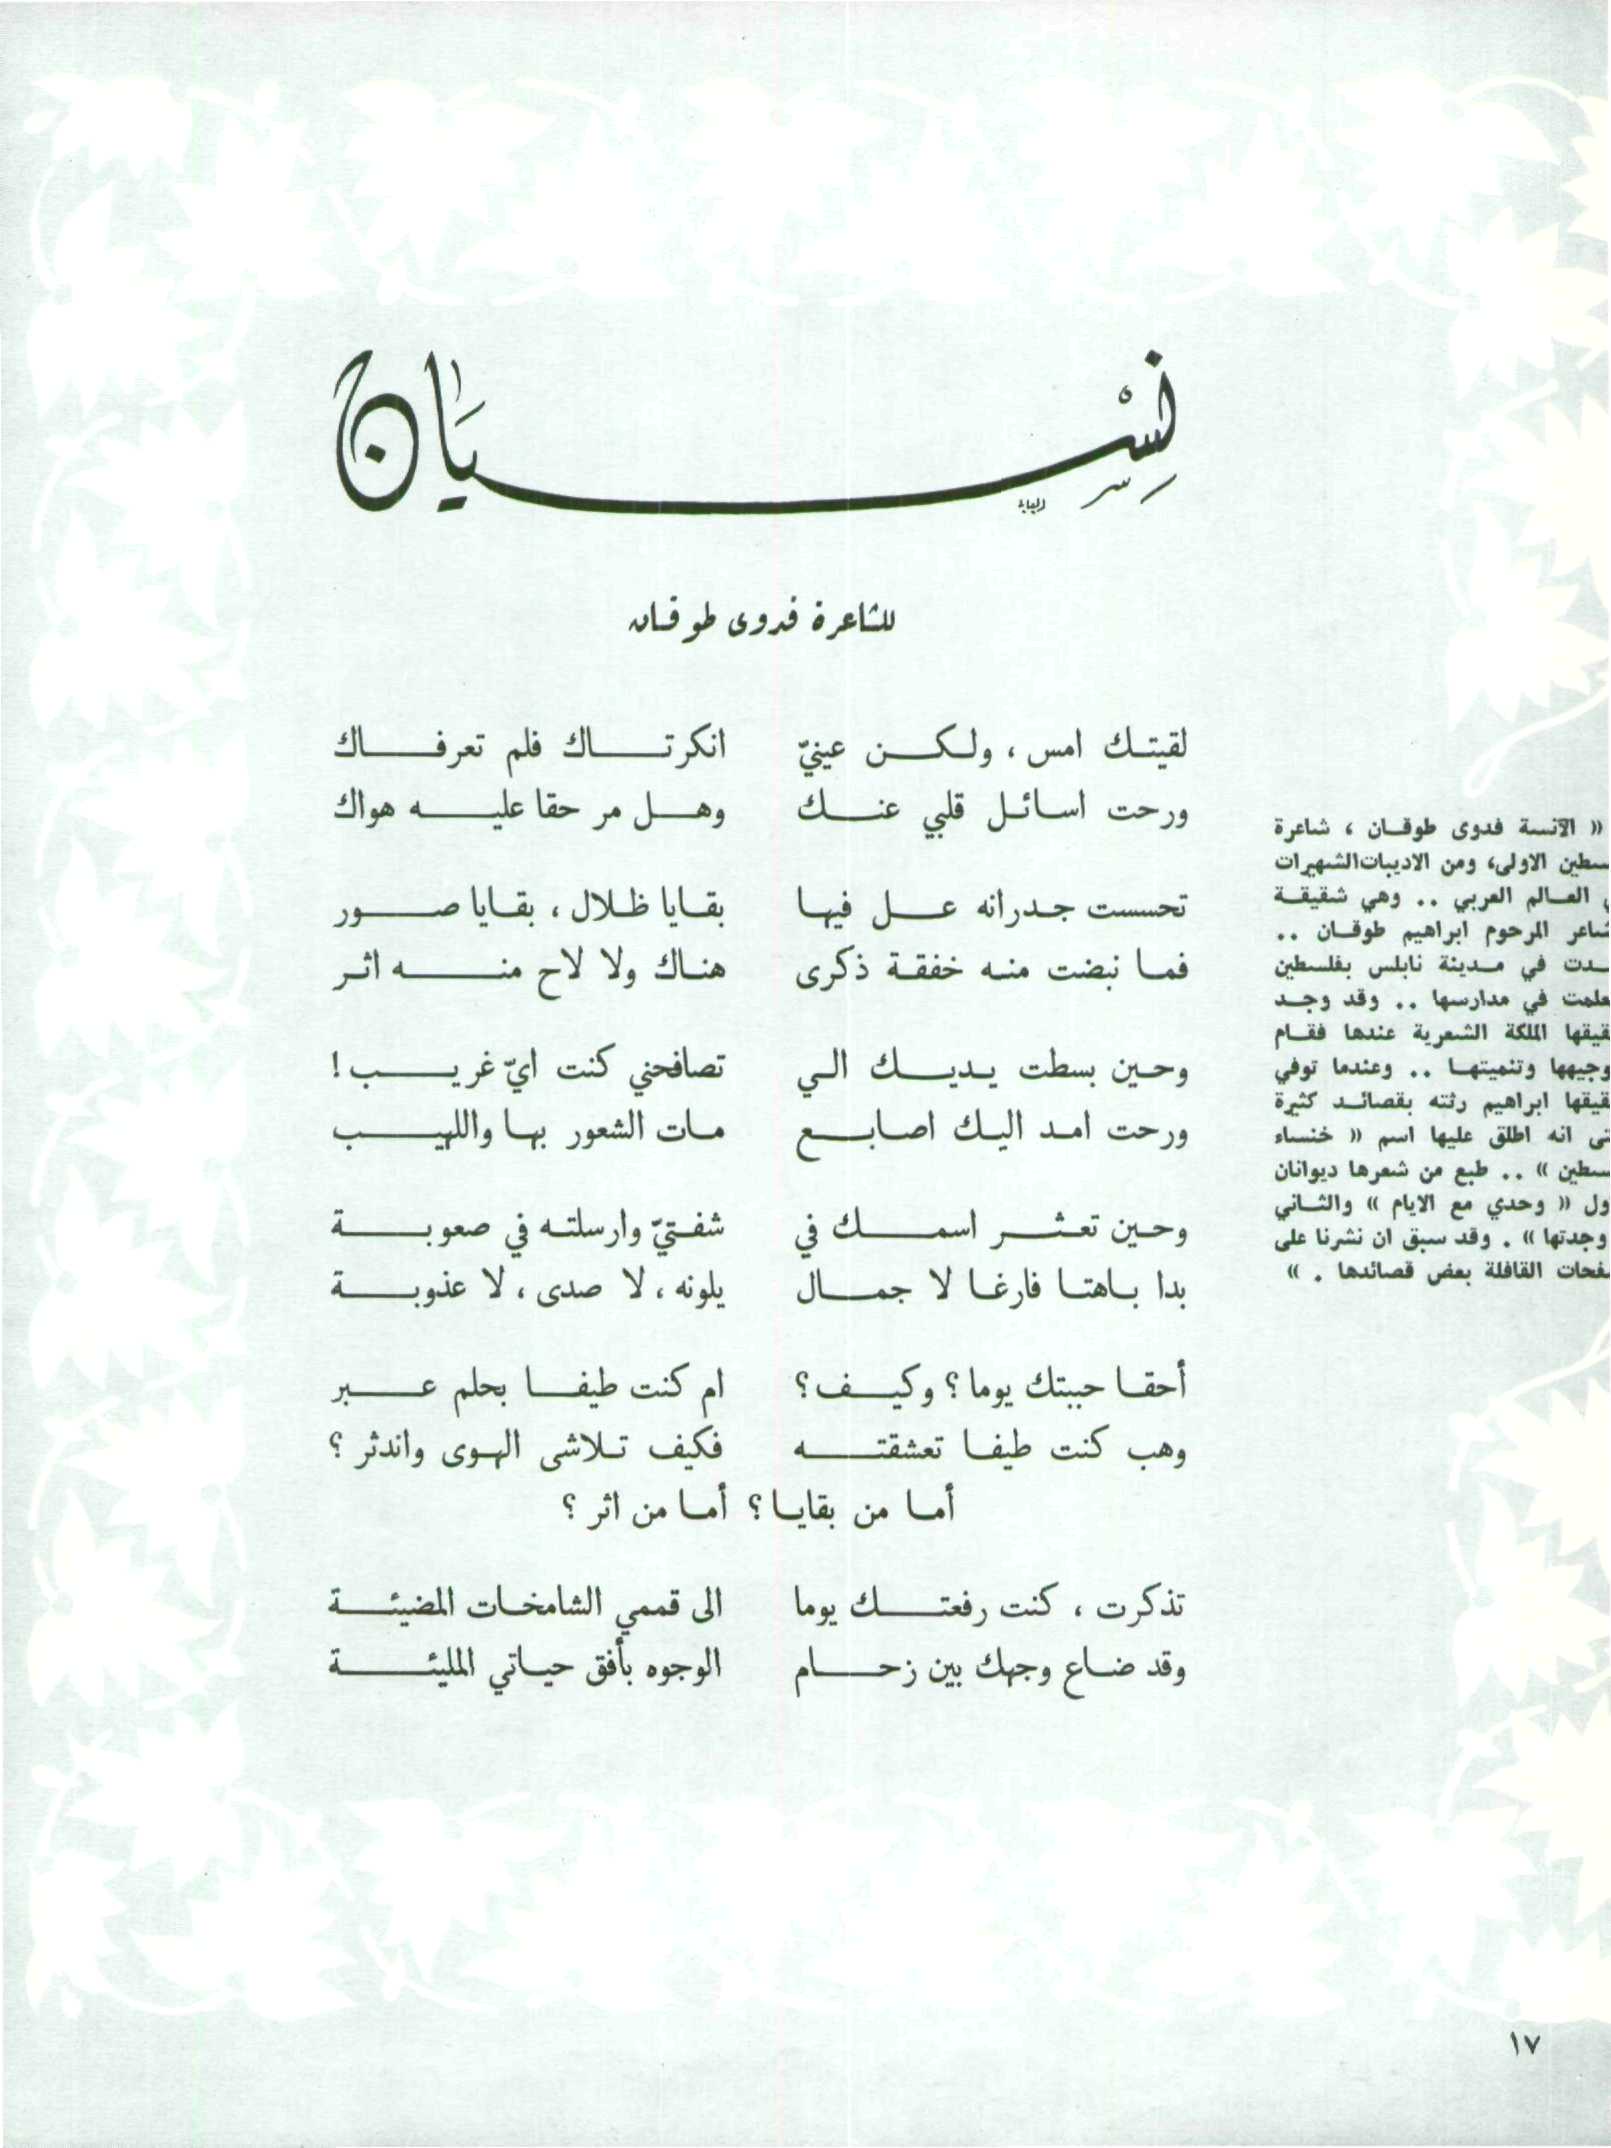 نِسْيَان
للشاعرة فدوى طوقان
لقيتك امس ، ولكن عينيّ انكرتاك فلم تعرفاك
ورحت اسائل قلبي عنك وهل مر حقا عليه هواك
تحسست جدرانه عل فيها بقايا ظلال ، بقايا صور
فما نبضت منه خفقة ذكرى هناك ولا لاح منه اثر
وحين بسطت يديك الي تصافحني كنت ايّ غريب !
ورحت امد اليك اصابع مات الشعور بها واللهيب
وحين تعثر اسمك في شفتيّ وارسلته في صعوبة
بدا باهتا فارغا لا جمال يلونه ، لا صدى ، لا عذوبة
أحقا حببتك يوما ؟ وكيف ؟ ام كنت طيفا بحلم عبر
وهب كنت طيفا تعشقته فكيف تلاشى الهوى واندثر ؟
أما من بقايا ؟ أما من اثر ؟
تذكرت ، كنت رفعتك يوما الى قممي الشامخات المضيئة
وقد ضاع وجهك بين زحام الوجوه بأفق حياتي المليئة
« الآنسة فدوى طوقان ، شاعرة
سطين الاولى، ومن الاديبات الشهيرات
العالم العربي .. وهي شقيقة
شاعر المرحوم ابراهيم طوقان ..
دت في مدينة نابلس بفلسطين
علمت في مدارسها .. وقد وجد
قيقها الملكة الشعرية عندها فقام
وجيهها وتنميتها .. وعندما توفي
قيقها ابراهيم رثته بقصائد كثيرة
تى انه اطلق عليها اسم « خنساء
سطين » .. طبع من شعرها ديوانان
ول « وحدي مع الايام » والثاني
وجدتها » . وقد سبق ان نشرنا على
فحات القافلة بعض قصائدها . »
١٧